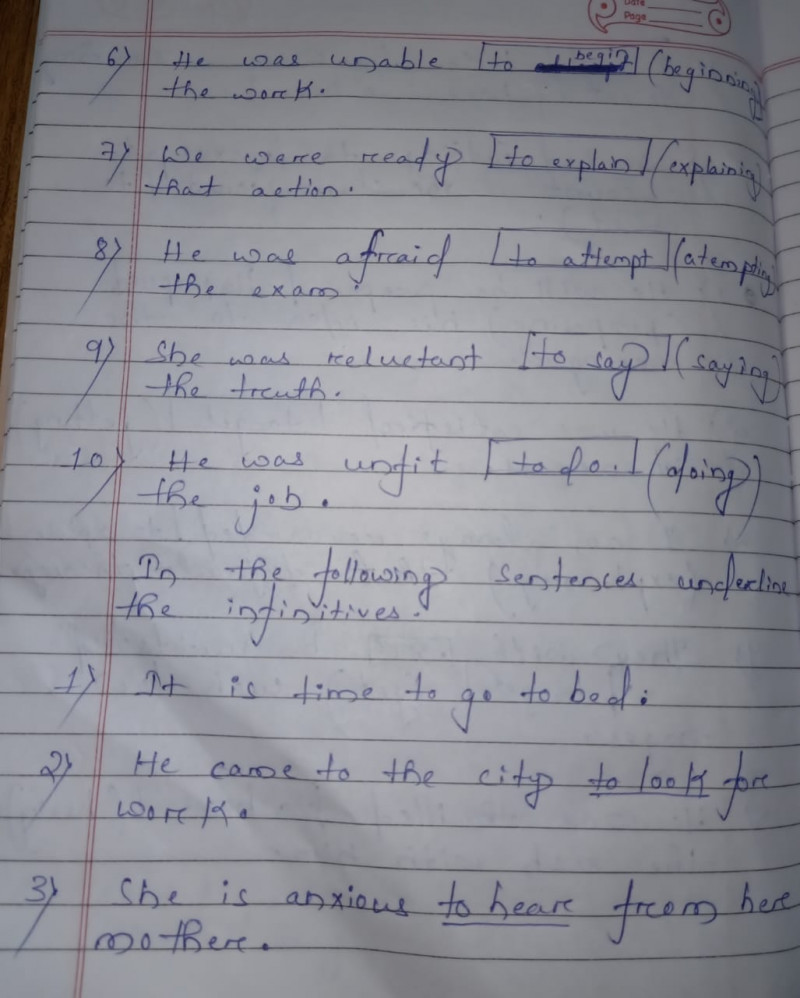 Date
Page
6) He was unable to begin (beginning)
the work.
7) We were ready to explain (explainig)
that action.
8) He was afraid to attempt (atempting)
the exam.
9) She was reluctant to say (saying)
the truth.
10) He was unfit to do. (doing)
the job.
In the following sentences underline
the infinitives.
1) It is time to go to bed.
2) He came to the city to look for
work.
3) She is anxious to hear from her
mother.